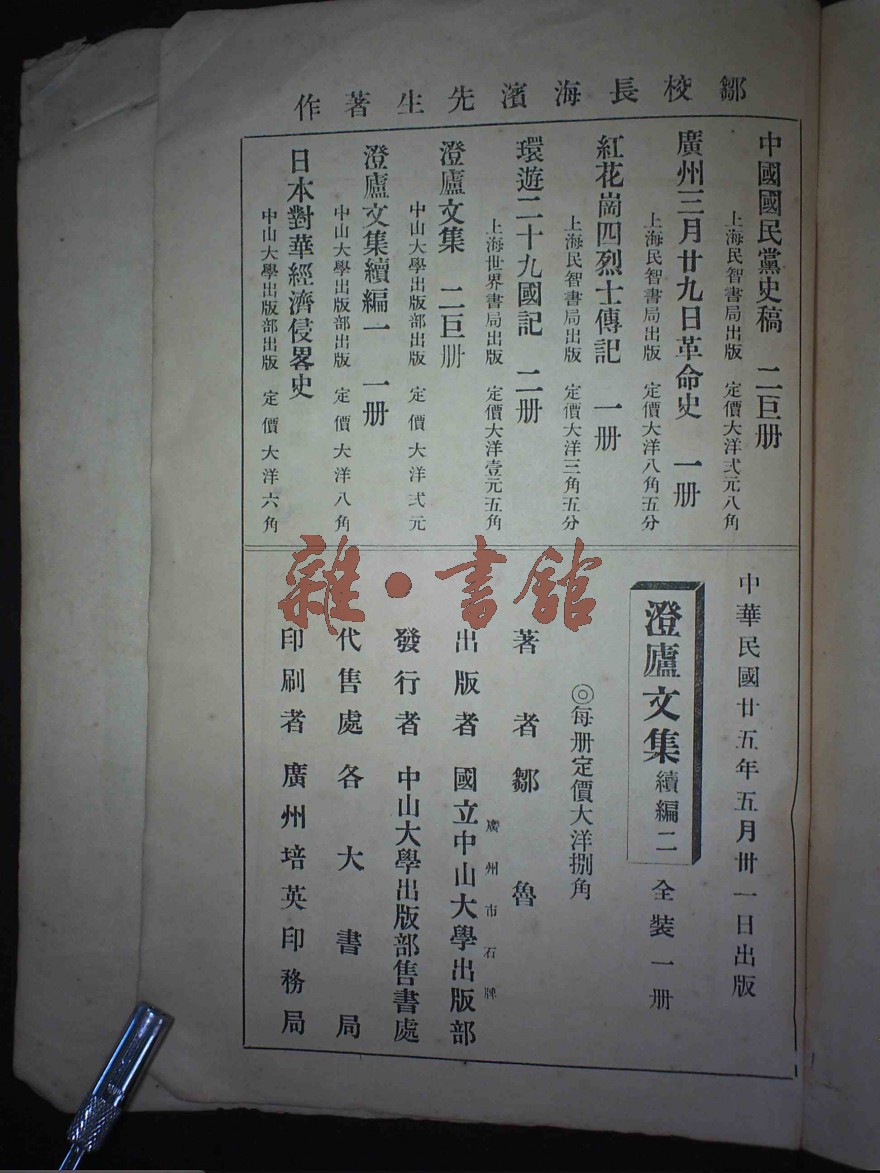 鄒校長海濱先生著作
中國國民黨史稿 二巨册
上海民智書局出版 定價大洋弍元八角
廣州三月廿九日革命史 一册
上海民智書局出版 定價大洋八角五分
紅花崗四烈士傳記 一册
上海民智書局出版 定價大洋三角五分
環遊二十九國記 二册
上海世界書局出版 定價大洋壹元五角
澄廬文集 二巨册
中山大學出版部出版 定價大洋弍元
澄廬文集續編一 一册
中山大學出版部出版 定價大洋八角
日本對華經濟侵畧史
中山大學出版部出版 定價大洋六角
中華民國廿五年五月卅一日出版
澄廬文集 續編二 全裝一册
◎每册定價大洋捌角
著者 鄒魯
廣州市石牌
出版者 國立中山大學出版部
發行者 中山大學出版部售書處
代售處 各大書局
印刷者 廣州培英印務局
雜·書館